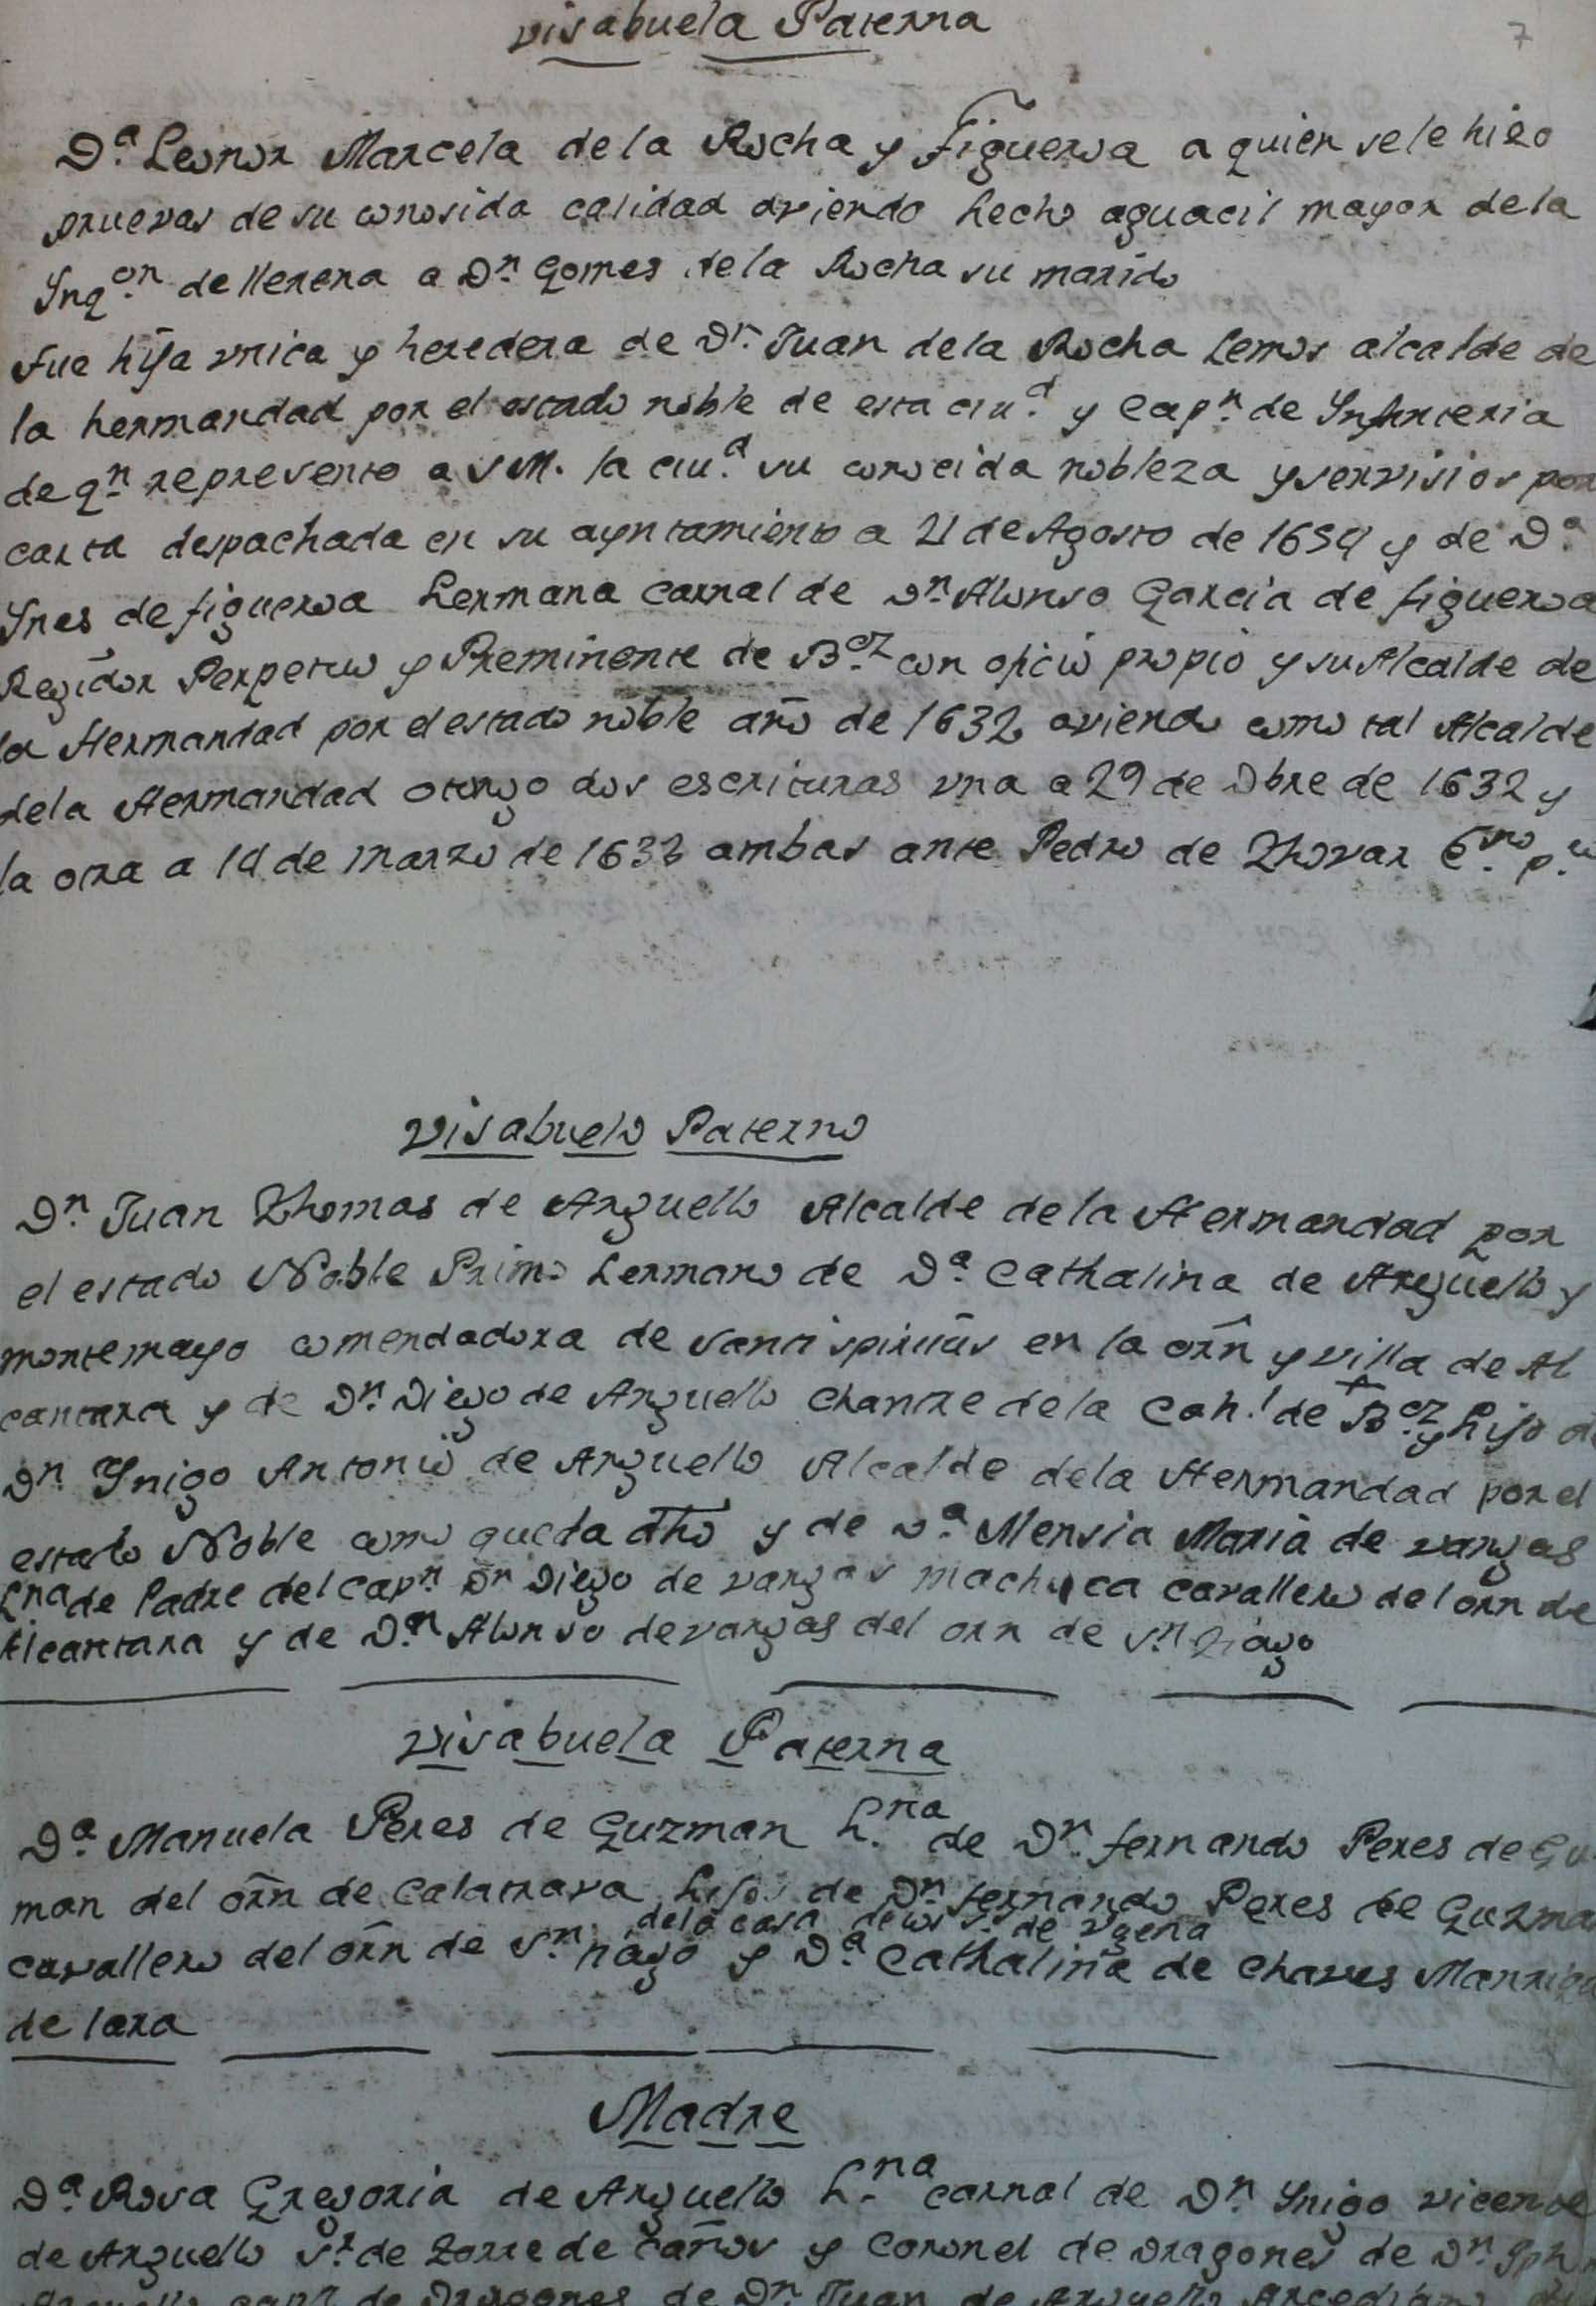 visabuela Paterna
7
Dª Leonor Marcela de la Rocha y Figueroa a quien se le hiso
pruevas de su conosida calidad aviendo hecho aguacil mayor de la
Ynqon de llerena a Dn Gomes de la Rocha su marido
fue hija vnica y heredera de Dn Juan de la Rocha Lemos alcalde de
la hermandad por el estado noble de esta ciud y Capn de Infanteria
de qn represento a S M. la ciud su conocida nobleza y servisios por
carta despachada en su ayntamiento a 21 de Agosto de 1654 y de Dª
Ynes de figueroa hermana carnal de Dn Alonso Garcia de figueroa
Regidor Perpetuo y Preminente de Bez con oficio propio y su Alcalde de
la Hermandad por el estado noble año de 1632 aviendo como tal Alcalde
de la Hermandad otorgo dos escrituras vna a 29 de Dbre de 1632 y
la otra a 14 de marzo de 1633 ambas ante Pedro de Thovar Esno pco
visabuelo Paterno
Dn Juan Thomas de Arguello Alcalde de la Hermandad por
el estado Noble Primo hermano de Dª Cathalina de Arguello y
montemayo comendadora de santispiritus en la orn y villa de Al
cantara y de Dn Diego de Arguello Chantre de la Cah.l de Bez y hijo de
Dn Ynigo Antonio de Arguello Alcalde de la Hermandad por el
estado Noble como queda dho y de Dª Mensia Maria de vargas
hna de Padre del Capn Dn Diego de vargas machuca cavallero del orn de
Alcantara y de Dn Alonso de vargas del orn de Sn tiago
visabuela Paterna
Dª Manuela Peres de Guzman h.na de Dn fernando Peres de Gu
man del orn de Calatrava hijos de Dn fernando Peres de Guzma
de la casa de los Ss de
cavallero del orn de Sn tiago y Dª Cathalina de Chaves Manriq
de lara
Madre
Dª Rosa Gregoria de Arguello h.na carnal de Dn Ynigo vicente
de Arguello Sr de torre de caños y Coronel de Dragones de Dn Jph
Arguello capn de Dragones de Dn Juan de Arguello Arcediano